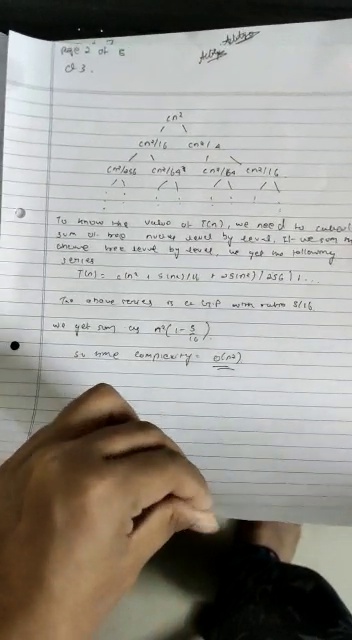 page 2 of 5
Q3.
cn²
cn²/16 cn²/4
cn²/256 cn²/64 cn²/64 cn²/16
To know the value of T(n), we need to
sum of tree nodes level by level. If we sum
above tree level by level, we get the following
series
T(n) = c(n² + 5(n²)/16 + 25(n²)/256)+...
The above series is a G.P with ratio 5/16
we get sum as n²(1-5/16)
so time complexity = O(n²)